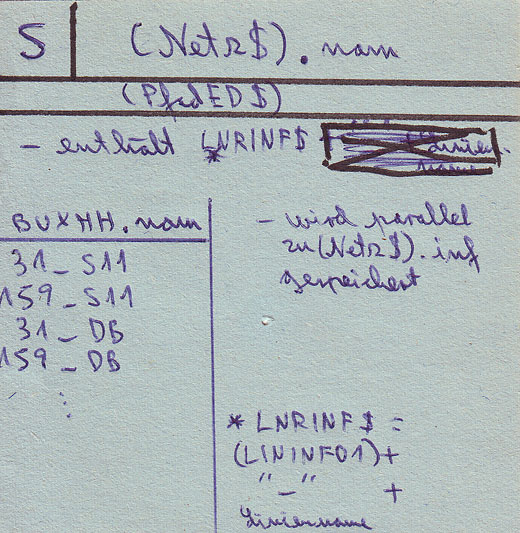 S
(Netz$).nam
(PfadED$)
- enthält LNRINF$ +
*
BUXHH.nam
31_S11
159_S11
31_DB
159_DB
- wird parallel
zu (Netz$).inf
gespeichert
* LNRINF$ =
(LININF01)+
"_" +
Linienname